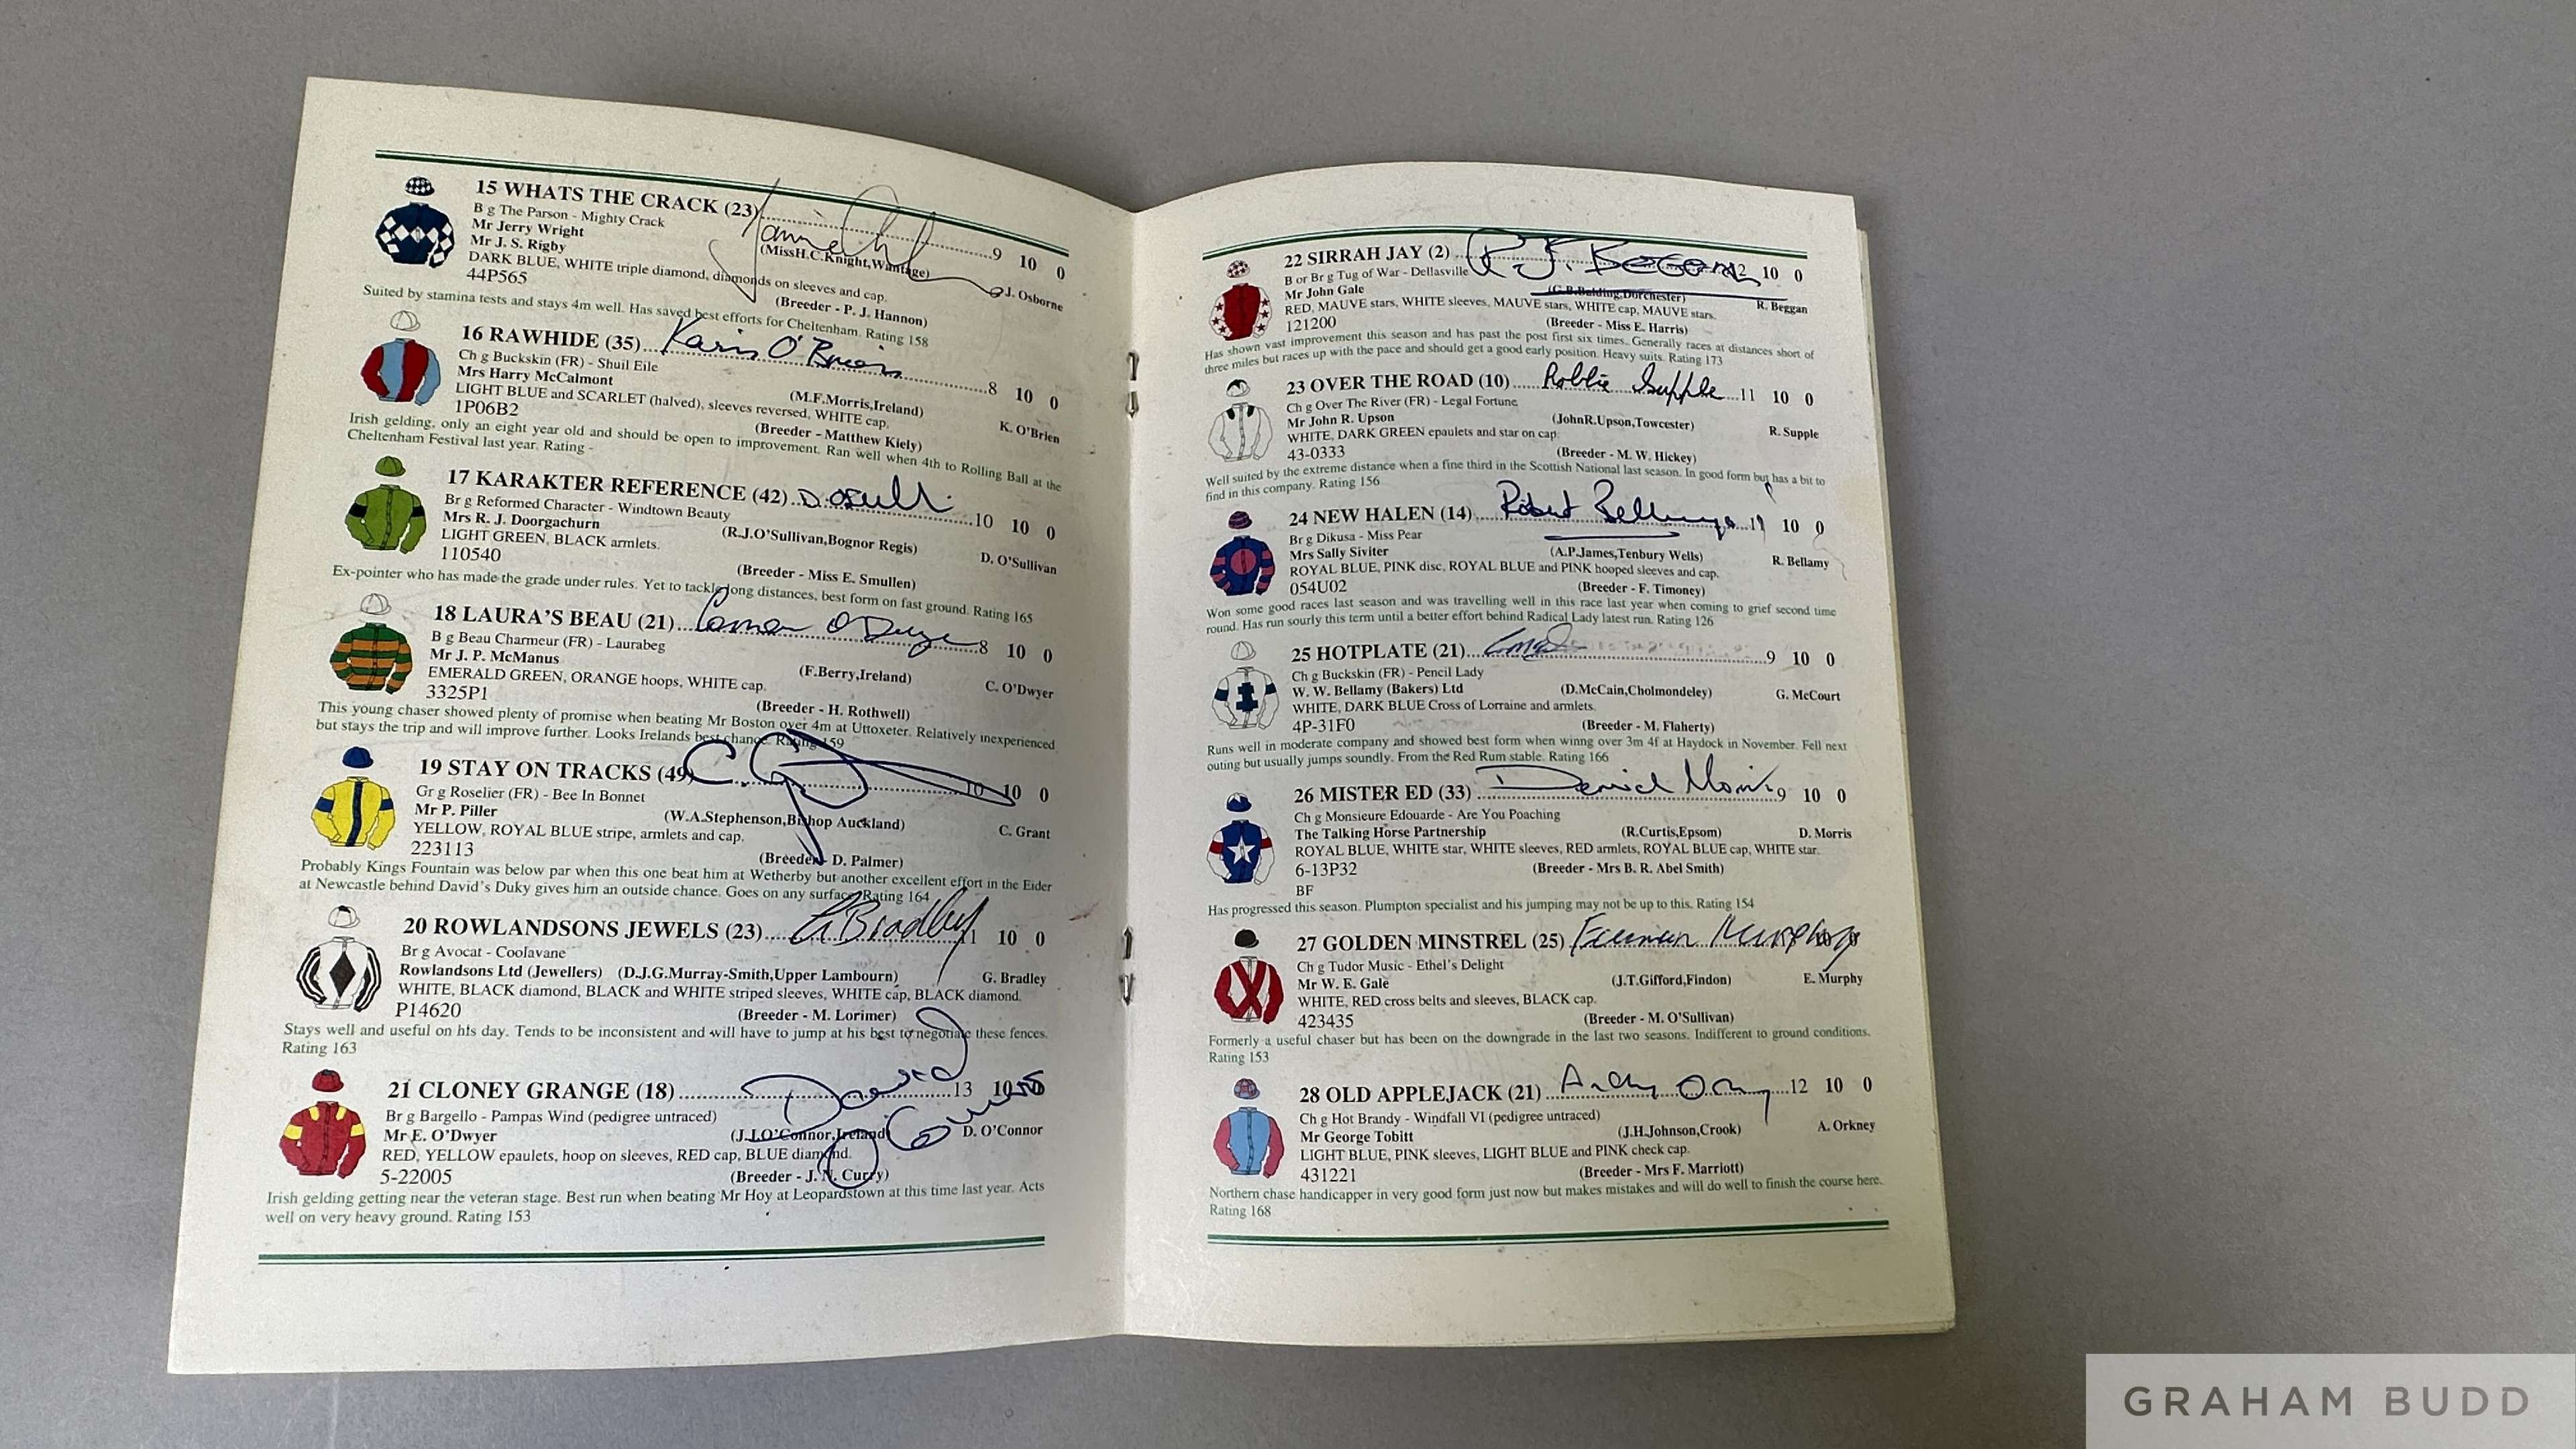 15 WHATS THE CRACK (23) 9 10 0
B g The Parson - Mighty Crack
Mr Jerry Wright
Mr J. S. Rigby (Miss H.C.Knight,Wantage) J. Osborne
DARK BLUE, WHITE triple diamond, diamonds on sleeves and cap.
44P565 (Breeder - P. J. Hannon)
Suited by stamina tests and stays 4m well. Has saved best efforts for Cheltenham. Rating 158
16 RAWHIDE (35) 8 10 0
Ch g Buckskin (FR) - Shuil Eile
Mrs Harry McCalmont (M.F.Morris,Ireland) K. O'Brien
LIGHT BLUE and SCARLET (halved), sleeves reversed, WHITE cap.
1P06B2 (Breeder - Matthew Kiely)
Irish gelding, only an eight year old and should be open to improvement. Ran well when 4th to Rolling Ball at the
Cheltenham Festival last year. Rating -
17 KARAKTER REFERENCE (42) D. OSull 10 10 0
Br g Reformed Character - Windtown Beauty
Mrs R. J. Doorgachurn (R.J.O'Sullivan,Bognor Regis) D. O'Sullivan
LIGHT GREEN, BLACK armlets.
110540 (Breeder - Miss E. Smullen)
Ex-pointer who has made the grade under rules. Yet to tackle long distances, best form on fast ground. Rating 165
18 LAURA'S BEAU (21) Conor O'Dwyer 8 10 0
B g Beau Charmeur (FR) - Laurabeg
Mr J. P. McManus (F.Berry,Ireland) C. O'Dwyer
EMERALD GREEN, ORANGE hoops, WHITE cap.
3325P1 (Breeder - H. Rothwell)
This young chaser showed plenty of promise when beating Mr Boston over 4m at Uttoxeter. Relatively inexperienced
but stays the trip and will improve further. Looks Irelands best chance. Rating 159
19 STAY ON TRACKS (49) 10 10 0
Gr g Roselier (FR) - Bee In Bonnet
Mr P. Piller (W.A.Stephenson,Bishop Auckland) C. Grant
YELLOW, ROYAL BLUE stripe, armlets and cap.
223113 (Breeder - D. Palmer)
Probably Kings Fountain was below par when this one beat him at Wetherby but another excellent effort in the Eider
at Newcastle behind David's Duky gives him an outside chance. Goes on any surface. Rating 164
20 ROWLANDSONS JEWELS (23) G Bradley 11 10 0
Br g Avocat - Coolavane
Rowlandsons Ltd (Jewellers) (D.J.G.Murray-Smith,Upper Lambourn) G. Bradley
WHITE, BLACK diamond, BLACK and WHITE striped sleeves, WHITE cap, BLACK diamond.
P14620 (Breeder - M. Lorimer)
Stays well and useful on his day. Tends to be inconsistent and will have to jump at his best to negotiate these fences.
Rating 163
21 CLONEY GRANGE (18) David O'Connor 13 10
Br g Bargello - Pampas Wind (pedigree untraced)
Mr E. O'Dwyer (J.J.O'Connor,Ireland) D. O'Connor
RED, YELLOW epaulets, hoop on sleeves, RED cap, BLUE diamond.
5-22005 (Breeder - J. N. Curry)
Irish gelding getting near the veteran stage. Best run when beating Mr Hoy at Leopardstown at this time last year. Acts
well on very heavy ground. Rating 153
22 SIRRAH JAY (2) R. J. Beggan 12 10 0
B or Br g Tug of War - Dellasville
Mr John Gale (G.B.Balding,Dorchester) R. Beggan
RED, MAUVE stars, WHITE sleeves, MAUVE stars, WHITE cap, MAUVE stars.
121200 (Breeder - Miss E. Harris)
Has shown vast improvement this season and has past the post first six times. Generally races at distances short of
three miles but races up with the pace and should get a good early position. Heavy suits. Rating 173
23 OVER THE ROAD (10) Robbie Supple 11 10 0
Ch g Over The River (FR) - Legal Fortune
Mr John R. Upson (JohnR.Upson,Towcester) R. Supple
WHITE, DARK GREEN epaulets and star on cap.
43-0333 (Breeder - M. W. Hickey)
Well suited by the extreme distance when a fine third in the Scottish National last season. In good form but has a bit to
find in this company. Rating 156
24 NEW HALEN (14) Robert Bellamy 11 10 0
Br g Dikusa - Miss Pear
Mrs Sally Siviter (A.P.James,Tenbury Wells) R. Bellamy
ROYAL BLUE, PINK disc, ROYAL BLUE and PINK hooped sleeves and cap.
054U02 (Breeder - F. Timoney)
Won some good races last season and was travelling well in this race last year when coming to grief second time
round. Has run sourly this term until a better effort behind Radical Lady latest run. Rating 126
25 HOTPLATE (21) 9 10 0
Ch g Buckskin (FR) - Pencil Lady
W. W. Bellamy (Bakers) Ltd (D.McCain,Cholmondeley) G. McCourt
WHITE, DARK BLUE Cross of Lorraine and armlets.
4P-31F0 (Breeder - M. Flaherty)
Runs well in moderate company and showed best form when winng over 3m 4f at Haydock in November. Fell next
outing but usually jumps soundly. From the Red Rum stable. Rating 166
26 MISTER ED (33) Derrick Morris 9 10 0
Ch g Monsieure Edouarde - Are You Poaching
The Talking Horse Partnership (R.Curtis,Epsom) D. Morris
ROYAL BLUE, WHITE star, WHITE sleeves, RED armlets, ROYAL BLUE cap, WHITE star.
6-13P32 (Breeder - Mrs B. R. Abel Smith)
BF
Has progressed this season. Plumpton specialist and his jumping may not be up to this. Rating 154
27 GOLDEN MINSTREL (25) Eamon Murphy
Ch g Tudor Music - Ethel's Delight
Mr W. E. Gale (J.T.Gifford,Findon) E. Murphy
WHITE, RED cross belts and sleeves, BLACK cap.
423435 (Breeder - M. O'Sullivan)
Formerly a useful chaser but has been on the downgrade in the last two seasons. Indifferent to ground conditions.
Rating 153
28 OLD APPLEJACK (21) Andy Orkney 12 10 0
Ch g Hot Brandy - Windfall VI (pedigree untraced)
Mr George Tobitt (J.H.Johnson,Crook) A. Orkney
LIGHT BLUE, PINK sleeves, LIGHT BLUE and PINK check cap.
431221 (Breeder - Mrs F. Marriott)
Northern chase handicapper in very good form just now but makes mistakes and will do well to finish the course here.
Rating 168
GRAHAM BUDD